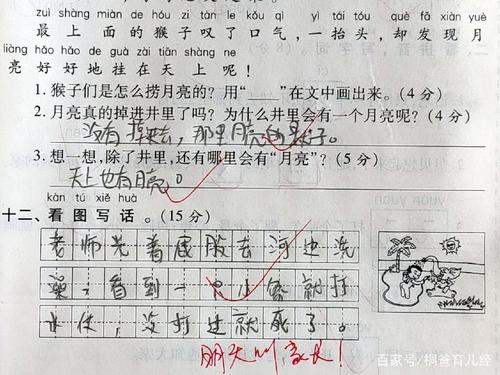 zuì shàng miàn de hóu zi tàn le kǒu qì yì tái tóu què fā xiàn yuè
最上面的猴子叹了口气，一抬头，却发现月
liàng hǎo hǎo de guà zài tiān shàng ne
亮好好地挂在天上呢！
1. 猴子们是怎么捞月亮的？用“___”在文中画出来。（4 分）
2. 月亮真的掉进井里了吗？为什么井里会有一个月亮呢？（4 分）
没有掉来去，那里月亮的影子。
3. 想一想，除了井里，还有哪里会有“月亮”？（5 分）
天上也有月亮。
kàn tú xiě huà
十二、看图写话。（15 分）
老师光着屁股去河边洗
澡，看到一只小客就打
水仗，没打过就死了。
明天叫家长！
百家号/桐爸育儿经